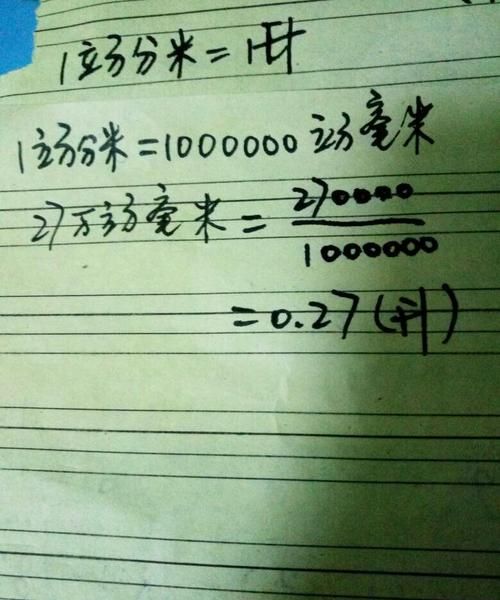 1立方分米=1升
1立方分米=1000000立方毫米
27万立方毫米=270000/1000000
=0.27(升)